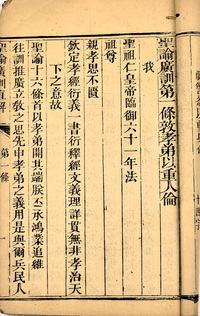 聖諭廣訓第一條敦孝弟以重人倫
我
聖祖仁皇帝臨御六十一年法
祖尊
親孝思不匱
欽定孝經衍義一書衍釋經文義理詳貫無非孝治天
下之意故
聖諭十六條首以孝弟開其端朕丕承鴻業追維
往訓推廣立敎之思先申孝弟之義用是與爾兵民人
聖諭廣訓直解
第一條
一